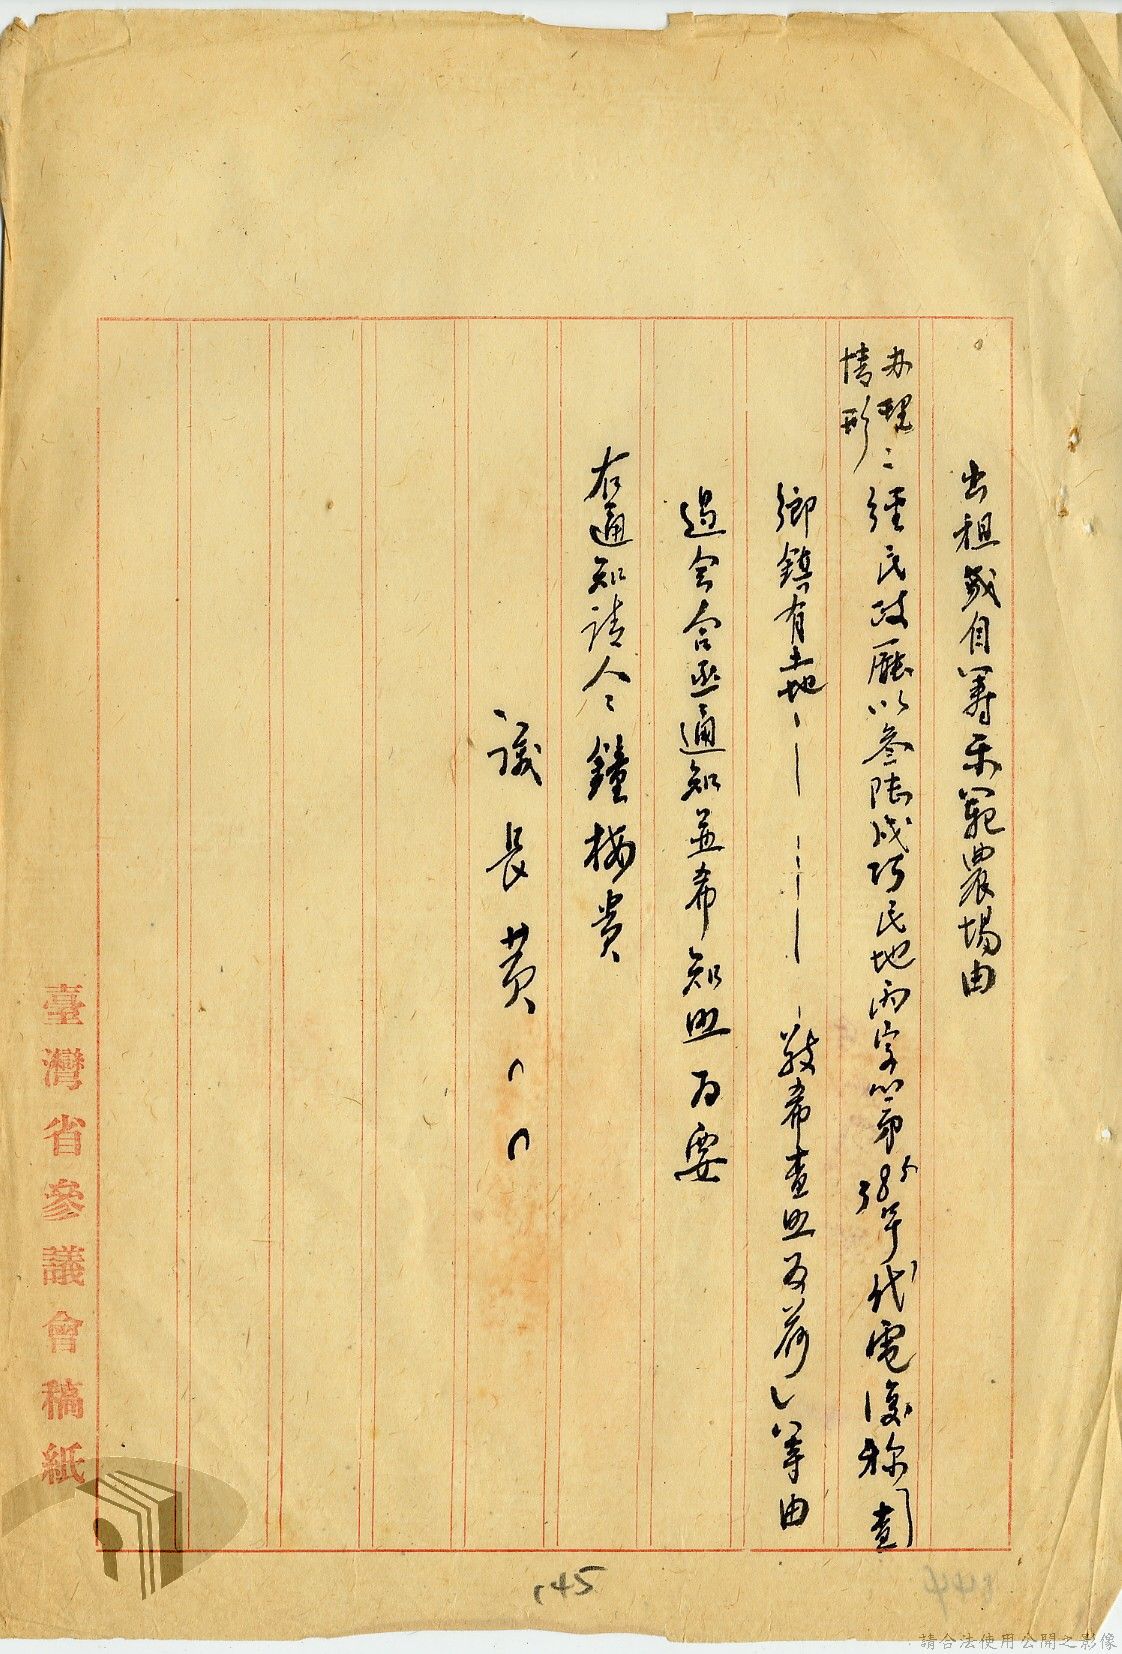 出租或自籌示範農場由
办理情形：經民政廳以叁陆戌巧民地丙字第385号代電復称「查
鄉鎮有土地、——、——、敬希查照为荷」等由
過会合亟通知並希知照为要
右通知請人：鍾梅貴
議長黄
臺灣省參議會稿紙
145
144
請合法使用公開之影像